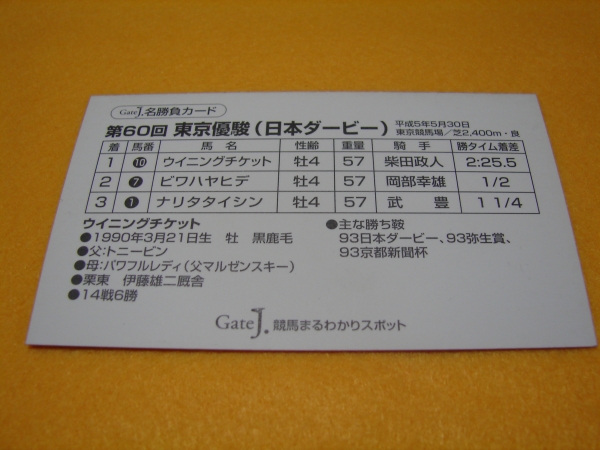 Gate J. 名勝負カード
第60回 東京優駿(日本ダービー) 平成5年5月30日
東京競馬場/芝2,400m・良
着 馬番 馬名 性齢 重量 騎手 勝タイム着差
1 ⑩ ウイニングチケット 牡4 57 柴田政人 2:25.5
2 ⑦ ビワハヤヒデ 牡4 57 岡部幸雄 1/2
3 ① ナリタタイシン 牡4 57 武 豊 1 1/4
ウイニングチケット
●1990年3月21日生 牡 黒鹿毛
●父:トニービン
●母:パワフルレディ(父マルゼンスキー)
●栗東 伊藤雄二厩舎
●14戦6勝
●主な勝ち鞍
93日本ダービー、93弥生賞、
93京都新聞杯
Gate J. 競馬まるわかりスポット